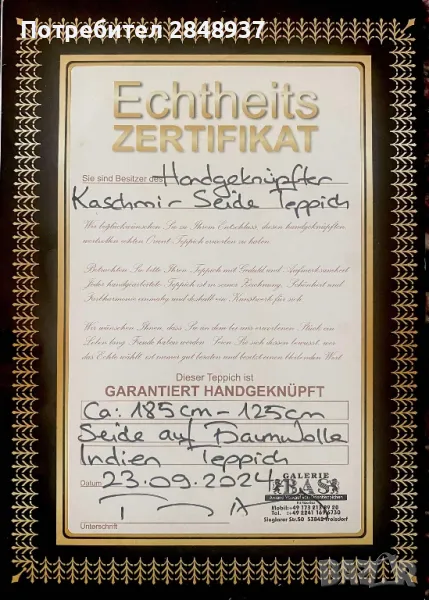 Потребител 2848937
Echtheits
ZERTIFIKAT
Sie sind Besitzer des Handgeknüpfter
Kaschmir Seide Teppich
Wir beglückwünschen Sie zu Ihrem Entschluss, diesen handgeknüpften
wertvollen echten Orient Teppich erworben zu haben.
Betrachten Sie bitte Ihren Teppich mit Geduld und Aufmerksamkeit
Jeder handgearbeitete Teppich ist in seiner Zeichnung, Schönheit und
Farbharmonie einmalig und deshalb ein Kunstwerk für sich
Wir wünschen Ihnen, dass Sie an dem bei uns erworbenen Stück ein
Leben lang Freude haben werden. Seien Sie sich dessen bewusst, wer
das Echte wählt ist immer gut beraten und besitzt einen bleibenden Wert
Dieser Teppich ist
GARANTIERT HANDGEKNÜPFT
Ca: 185cm - 125cm
Seide auf Baumwolle
Indien Teppich
Datum 23.09.2024
GALERIE
BAS
Sieglarer Str.50 53842 Troisdorf
Unterschrift
BAZAR